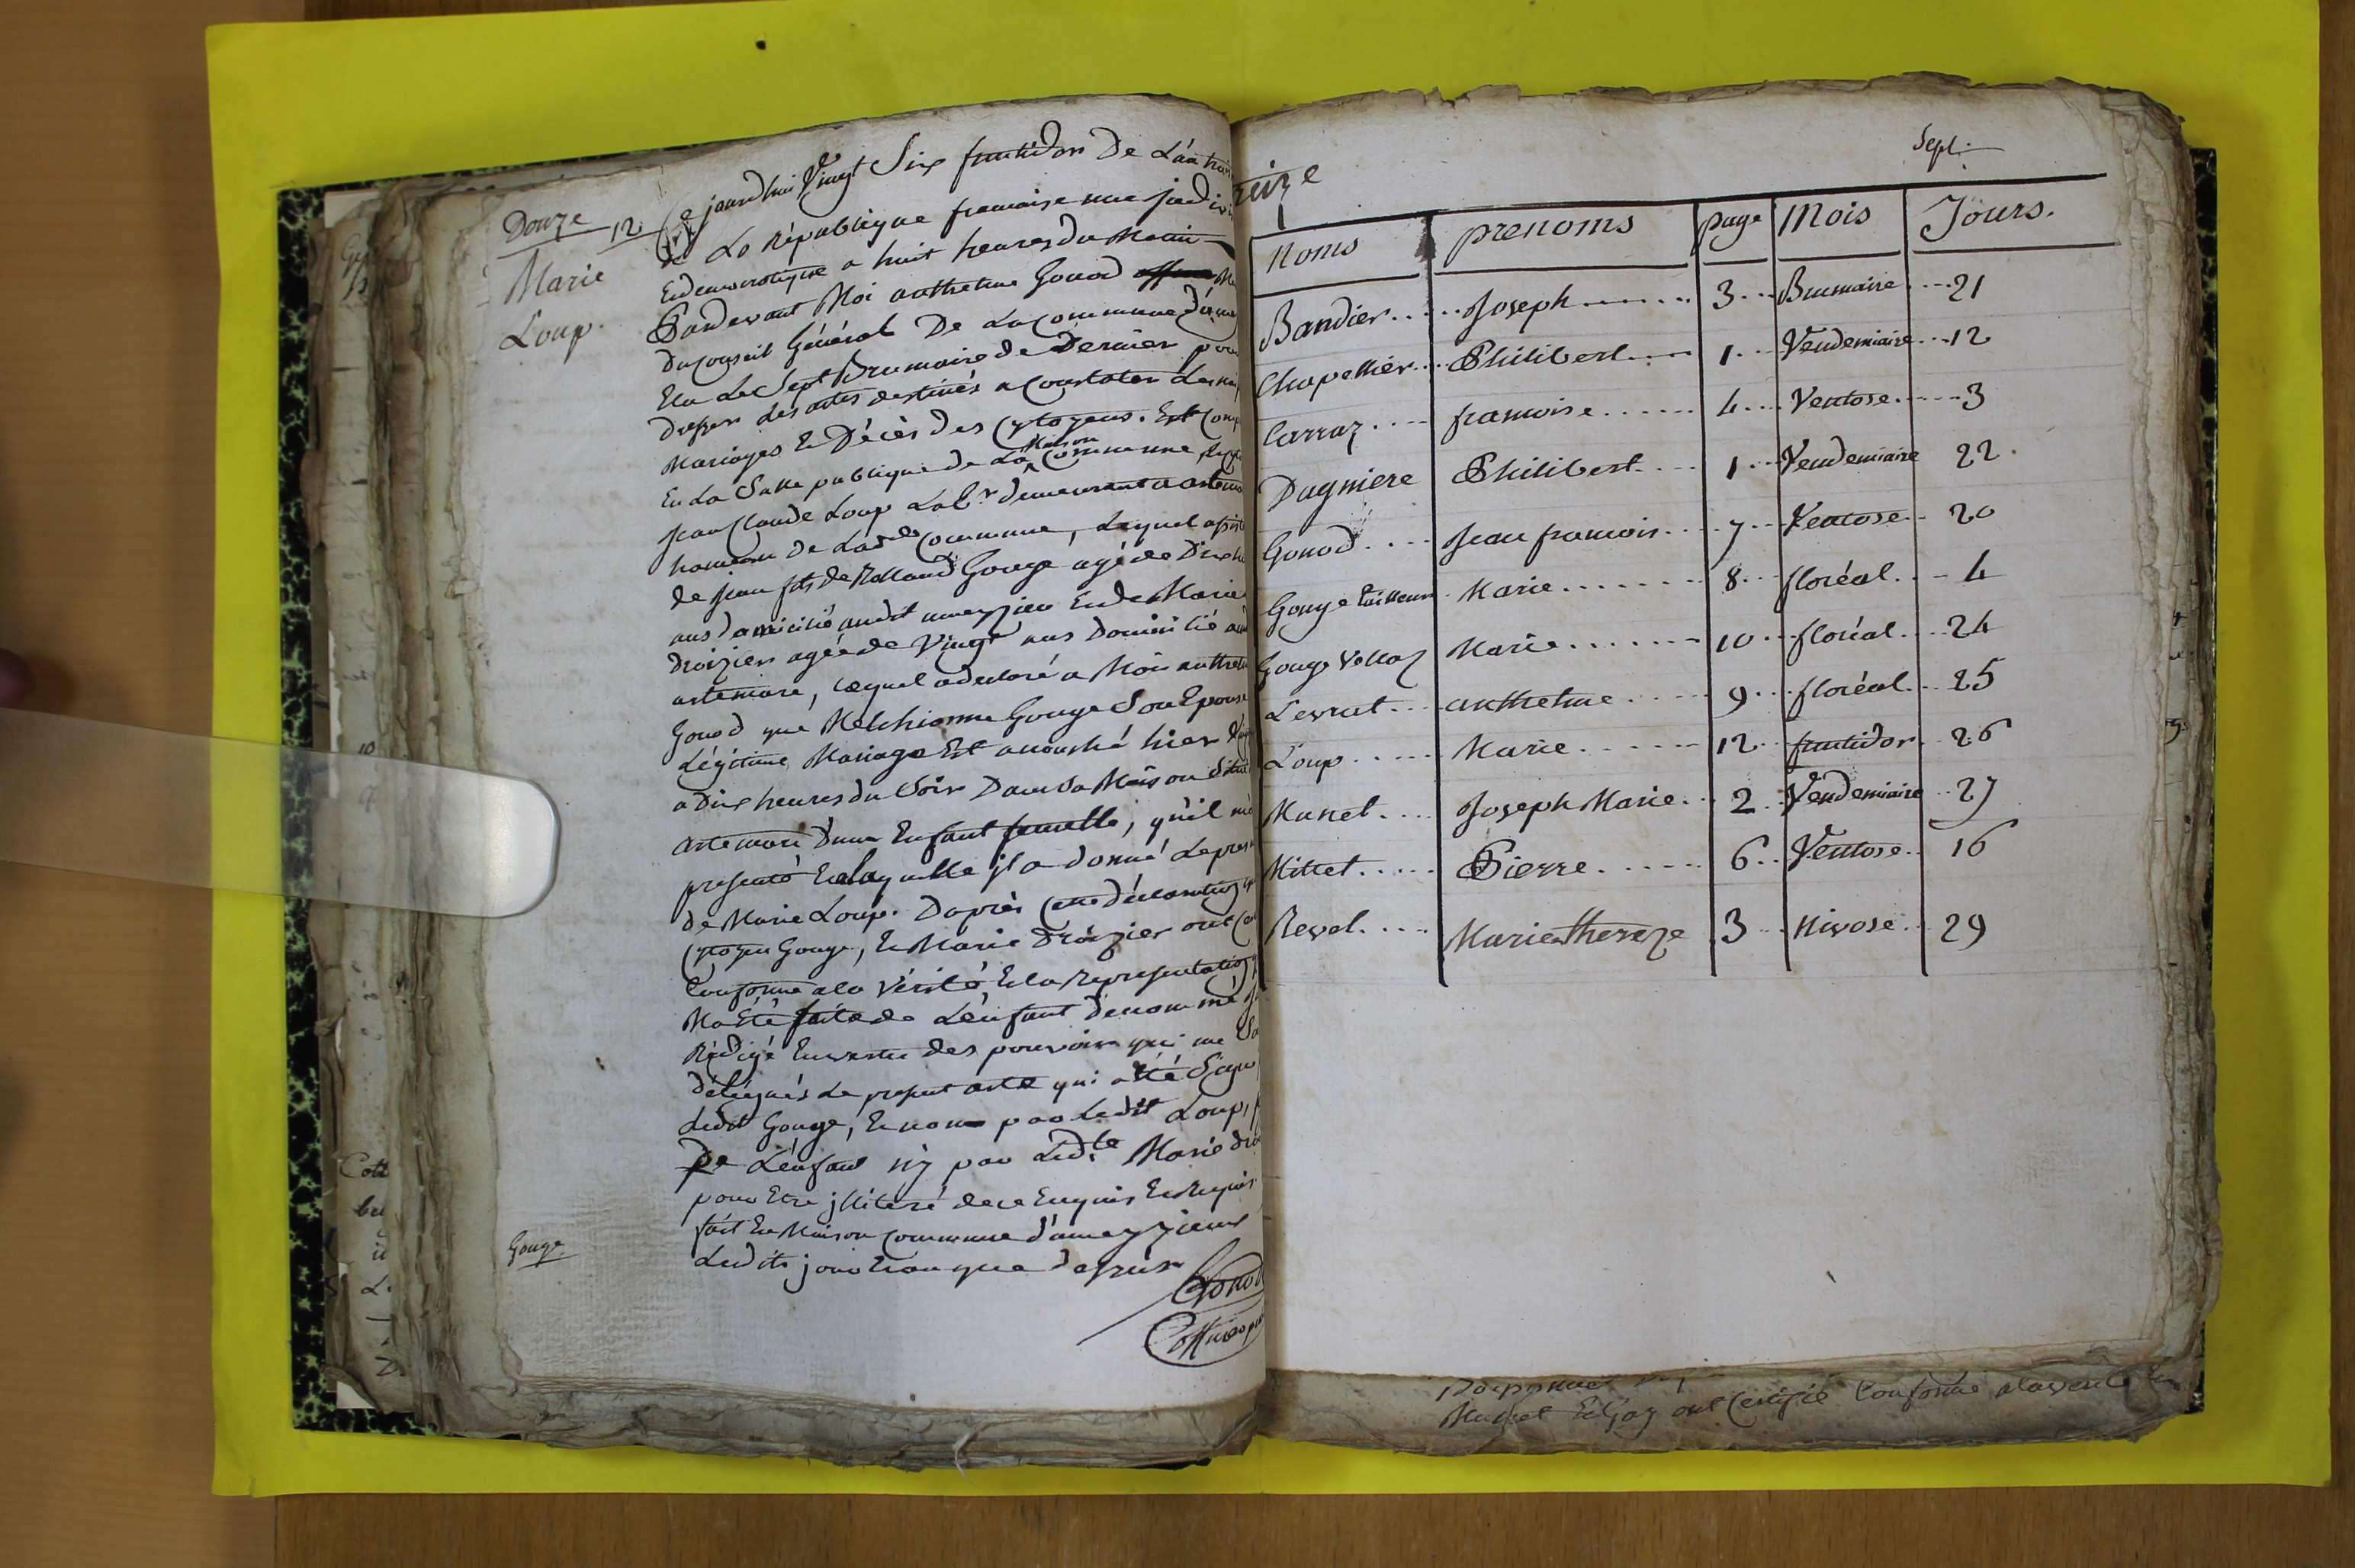 Douze
12
Marie
Loup.
Ce jourdhui Vingt Six fructidor De L'an trois
de La République francaise une jndivi
Et democratique a huit heures du Matin
Pardevant Moi anthelme Gonod
Du Conseil Général De La Commune d'am
Elu Le Sept Brumaire de Dernier pour
Dresser des actes destinés a Constater Les nai
Mariages Et Décès des Cytoyens. Est Comp
En La Salle publique de La Maison Commune
Jean Claude Loup Lab.r demeurant a artemare
hameau de Lad.te Commune, Lequel assisté
de jean fils de Rolland Gouge agé de Dix hu
ans domicilié audit ameyzieu Et de Marie
Droizier agée de Vingt ans Domicilié aud
artemare, Lequel a declaré a Moi anthelme
Gonod que Melchionne Gouge Son Epouse
Légitime Mariage Est accouché hier
a Dix heures du Soir Dans Sa Maison Situé
artemare D'une Enfant femelle, qu'il m'a
presenté Et a Laquelle il a donné Le pren
de Marie Loup. D'après Cette déclaration
Cytoyen Gouge, Et Marie Droizier ont
Conforme a la Vérité, Et la representation
M'a Eté faite de L'enfant dénommé
Rédigé En vertu des pouvoirs qui me So
délégués Le present acte qui a Eté Signé
Ledit Gouge, Et non par Ledit Loup,
De L'enfant ny par Lad.te Marie dro
pour Etre jlliteré de ce Enquis Et Requis
fait En Maison Commune d'ameyzieux
Ledits jour Et an que dessus
Gouge
Gonod
reize
Sept.
Noms prenoms page Mois Jours.
Bandier..... Joseph....... 3... Brumaire ... 21
Chapellier... Philibert.... 1... Vendemiaire... 12
Carraz.... francoise...... 4... Ventose..... 3
Dagniere Philibert.... 1... Vendemiaire 22.
Gonod.... Jean francois.... 7... Ventose.. 20
Gouge tailleur. Marie....... 8... floréal... 4
Gouge Vollaz Marie....... 10... floréal... 24
Levrat... anthelme..... 9... floréal... 25
Loup..... Marie...... 12... fructidor. 26
Munet.... Joseph Marie.. 2. Vendemiaire .. 27
Mittet..... Pierre...... 6.. Ventose.. 16
Revel.... Marie Thereze 3.. Nivose.. 29
Munet Et Goy ont Certifié Conforme a la verité